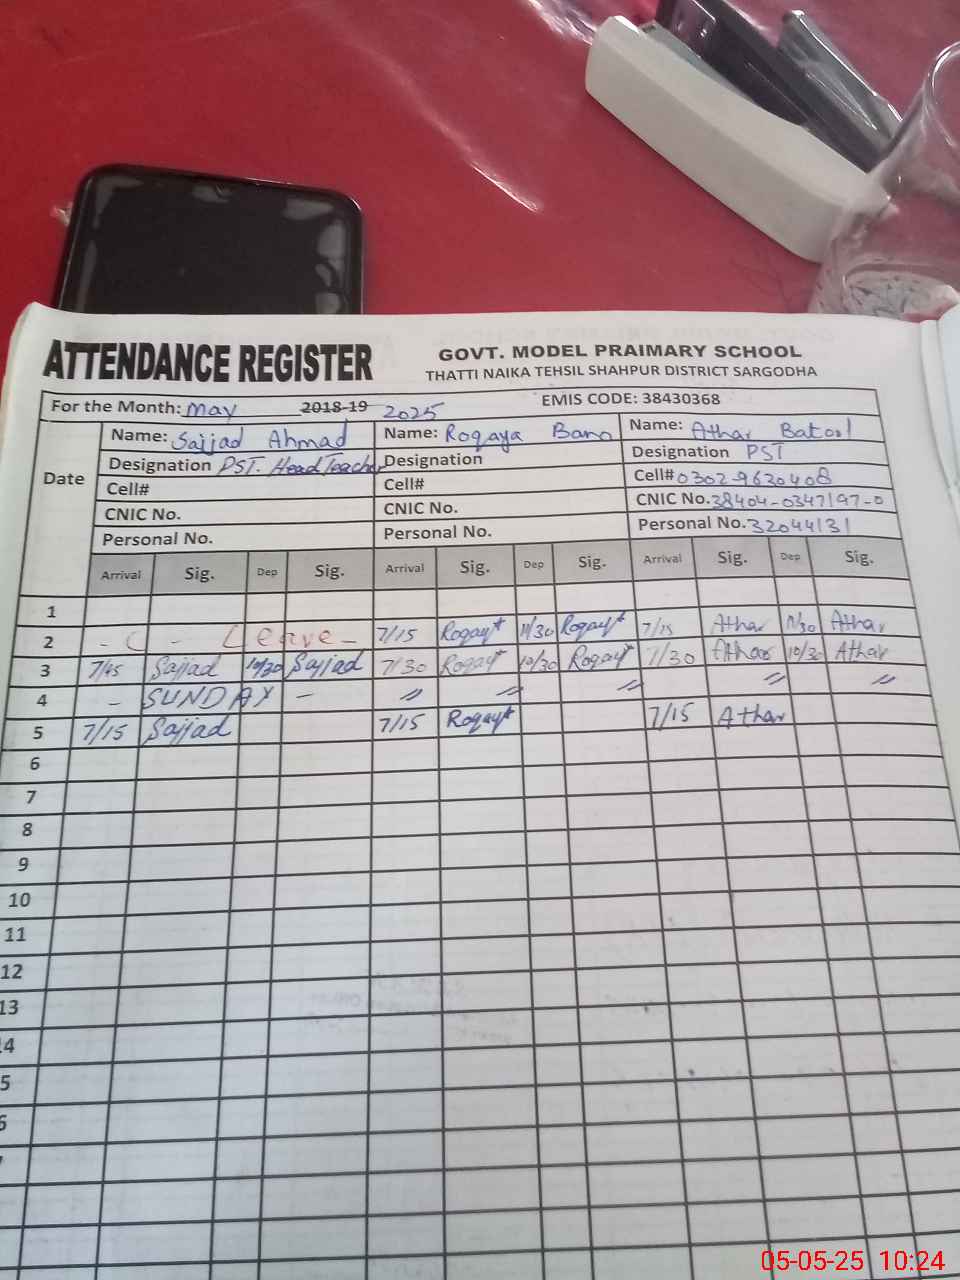 ATTENDANCE REGISTER
GOVT. MODEL PRAIMARY SCHOOL
THATTI NAIKA TEHSIL SHAHPUR DISTRICT SARGODHA
For the Month: May 2018-19 2025 EMIS CODE: 38430368
Date
Name: Sajjad Ahmad Name: Roqaya Bano Name: Athar Batool
Designation PST. Head Teacher Designation Designation PST
Cell# Cell# Cell# 0302-9620408
CNIC No. CNIC No. CNIC No. 38404-0347197-0
Personal No. Personal No. Personal No. 32044131
Arrival Sig. Dep Sig. Arrival Sig. Dep Sig. Arrival Sig. Dep Sig.
1
2 - ( - Leave - 7/15 Roqaya 11/30 Roqaya 7/15 Athar 11/30 Athar
3 7/45 Sajjad 10/30 Sajjad 7/30 Roqaya 10/30 Roqaya 7/30 Athar 10/30 Athar
4 - SUNDAY - " " " " "
5 7/15 Sajjad 7/15 Roqaya 7/15 Athar
6
7
8
9
10
11
12
13
4
5
6
05-05-25 10:24